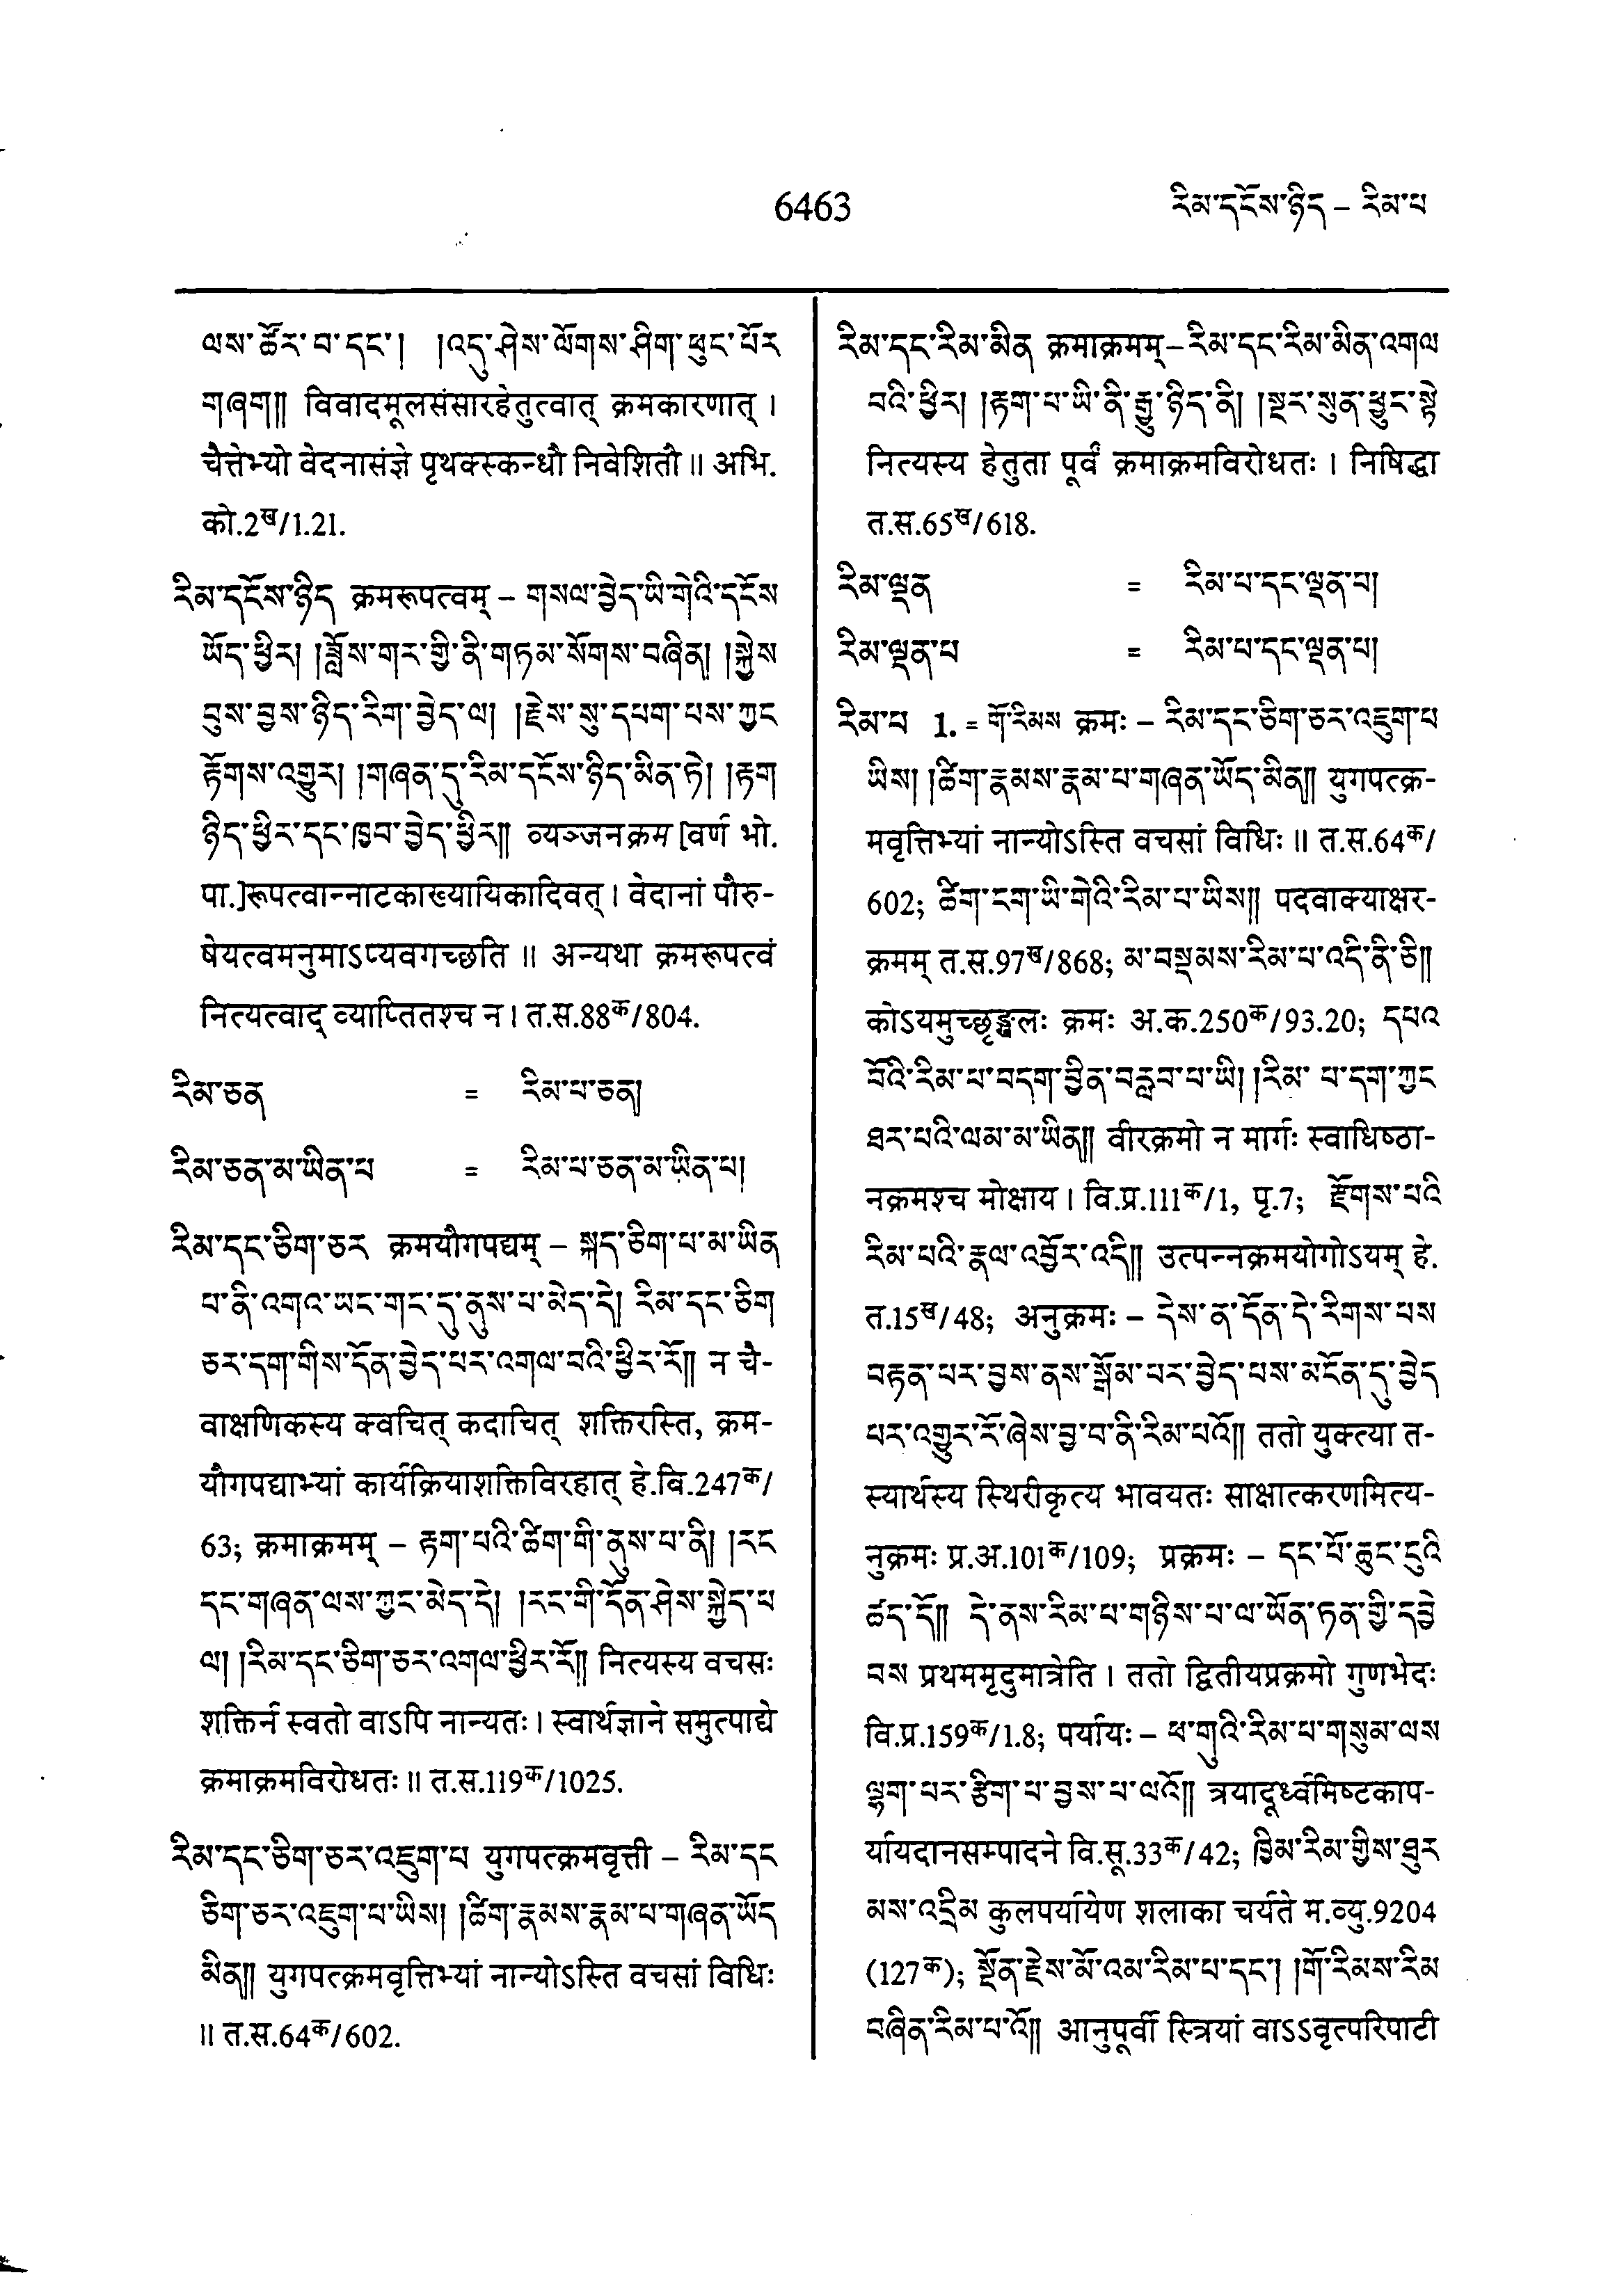 6463
རིམ་དངོས་ཉིད – རིམ་པ
ལས་ཚོར་བ་དང་། །འདུ་ཤེས་ལོགས་ཤིག་ཕུང་པོར
གཞག།། विवादमूलसंसारहेतुत्वात् क्रमकारणात् ।
चैत्तेभ्यो वेदनासंज्ञे पृथक्स्कन्धौ निवेशितौ ॥ अभि.
को.2ख/1.21.
རིམ་དངོས་ཉིད क्रमरूपत्वम् – གསལ་བྱེད་ཡི་གེའི་དངོས
ཡོད་ཕྱིར། །ཟློས་གར་གྱི་ནི་གཏམ་སོགས་བཞིན། །སྐྱེས
བུས་བྱས་ཉིད་རིག་བྱེད་ལ། །རྗེས་སུ་དཔག་པས་ཀྱང
རྟོགས་འགྱུར། །གཞན་དུ་རིམ་དངོས་ཉིད་མིན་ཏེ། །རྟག
ཉིད་ཕྱིར་དང་ཁྱབ་བྱེད་ཕྱིར།། व्यञ्जनक्रम [वर्ण भो.
पा.]रूपत्वान्नाटकाख्यायिकादिवत् । वेदानां पौरु-
षेयत्वमनुमाऽप्यवगच्छति ॥ अन्यथा क्रमरूपत्वं
नित्यत्वाद् व्याप्तितश्च न । त.स.88क/804.
རིམ་ཅན = རིམ་པ་ཅན།
རིམ་ཅན་མ་ཡིན་པ = རིམ་པ་ཅན་མ་ཡིན་པ།
རིམ་དང་ཅིག་ཅར क्रमयौगपद्यम् – སྐད་ཅིག་པ་མ་ཡིན
པ་ནི་འགའ་ཡང་གང་དུ་ནུས་པ་མེད་དེ། རིམ་དང་ཅིག
ཅར་དག་གིས་དོན་བྱེད་པར་འགལ་བའི་ཕྱིར་རོ།། न चै-
वाक्षणिकस्य क्वचित् कदाचित् शक्तिरस्ति, क्रम-
यौगपद्याभ्यां कार्यक्रियाशक्तिविरहात् हे.वि.247क/
63; क्रमाक्रमम् – རྟག་པའི་ཚིག་གི་ནུས་པ་ནི། །རང
དང་གཞན་ལས་ཀྱང་མེད་དེ། །རང་གི་དོན་ཤེས་སྐྱེད་པ
ལ། །རིམ་དང་ཅིག་ཅར་འགལ་ཕྱིར་རོ།། नित्यस्य वचसः
शक्तिर्न स्वतो वाऽपि नान्यतः । स्वार्थज्ञाने समुत्पाद्ये
क्रमाक्रमविरोधतः ॥ त.स.119क/1025.
རིམ་དང་ཅིག་ཅར་འཇུག་པ युगपत्क्रमवृत्ती – རིམ་དང
ཅིག་ཅར་འཇུག་པ་ཡིས། །ཚིག་རྣམས་རྣམ་པ་གཞན་ཡོད
མིན།། युगपत्क्रमवृत्तिभ्यां नान्योऽस्ति वचसां विधिः
॥ त.स.64क/602.
རིམ་དང་རིམ་མིན क्रमाक्रमम्–རིམ་དང་རིམ་མིན་འགལ
བའི་ཕྱིར། །རྟག་པ་ཡི་ནི་རྒྱུ་ཉིད་ནི། །སྔར་སུན་ཕྱུང་སྟེ
नित्यस्य हेतुता पूर्वं क्रमाक्रमविरोधतः । निषिद्धा
त.स.65ख/618.
རིམ་ལྡན = རིམ་པ་དང་ལྡན་པ།
རིམ་ལྡན་པ = རིམ་པ་དང་ལྡན་པ།
རིམ་པ 1. = གོ་རིམས क्रमः – རིམ་དང་ཅིག་ཅར་འཇུག་པ
ཡིས། །ཚིག་རྣམས་རྣམ་པ་གཞན་ཡོད་མིན།། युगपत्क्र-
मवृत्तिभ्यां नान्योऽस्ति वचसां विधिः ॥ त.स.64क/
602; ཚིག་ངག་ཡི་གེའི་རིམ་པ་ཡིས།། पदवाक्याक्षर-
क्रमम् त.स.97ख/868; མ་བསྡམས་རིམ་པ་འདི་ནི་ཅི།།
कोऽयमुच्छृङ्खलः क्रमः अ.क.250क/93.20; དཔའ
བོའི་རིམ་པ་བདག་བྱིན་བརླབ་པ་ཡི། །རིམ་ པ་དག་ཀྱང
ཐར་པའི་ལམ་མ་ཡིན།། वीरक्रमो न मार्गः स्वाधिष्ठा-
नक्रमश्च मोक्षाय । वि.प्र.111क/1, पृ.7; རྫོགས་པའི
རིམ་པའི་རྣལ་འབྱོར་འདི།། उत्पन्नक्रमयोगोऽयम् हे.
त.15ख/48; अनुक्रमः – དེས་ན་དོན་དེ་རིགས་པས
བརྟན་པར་བྱས་ནས་སྒོམ་པར་བྱེད་པས་མངོན་དུ་བྱེད
པར་འགྱུར་རོ་ཞེས་བྱ་བ་ནི་རིམ་པའོ།། ततो युक्त्या त-
स्यार्थस्य स्थिरीकृत्य भावयतः साक्षात्करणमित्य-
नुक्रमः प्र.अ.101क/109; प्रक्रमः – དང་པོ་ཆུང་ངུའི
ཚད་དོ།། དེ་ནས་རིམ་པ་གཉིས་པ་ལ་ཡོན་ཏན་གྱི་དབྱེ
བས प्रथममृदुमात्रेति । ततो द्वितीयप्रक्रमो गुणभेदः
वि.प्र.159क/1.8; पर्यायः – ཕ་གུའི་རིམ་པ་གསུམ་ལས
ལྷག་པར་རྩིག་པ་བྱས་པ་ལའོ།། त्रयादूर्ध्वमिष्टकाप-
र्यायदानसम्पादने वि.सू.33क/42; ཁྱིམ་རིམ་གྱིས་ཐུར
མས་འདྲིམ कुलपर्यायेण शलाका चर्यते म.व्यु.9204
(127क); སྔོན་རྗེས་མོ་འམ་རིམ་པ་དང་། །གོ་རིམས་རིམ
བཞིན་རིམ་པ་འོ།། आनुपूर्वी स्त्रियां वाऽऽवृत्परिपाटी